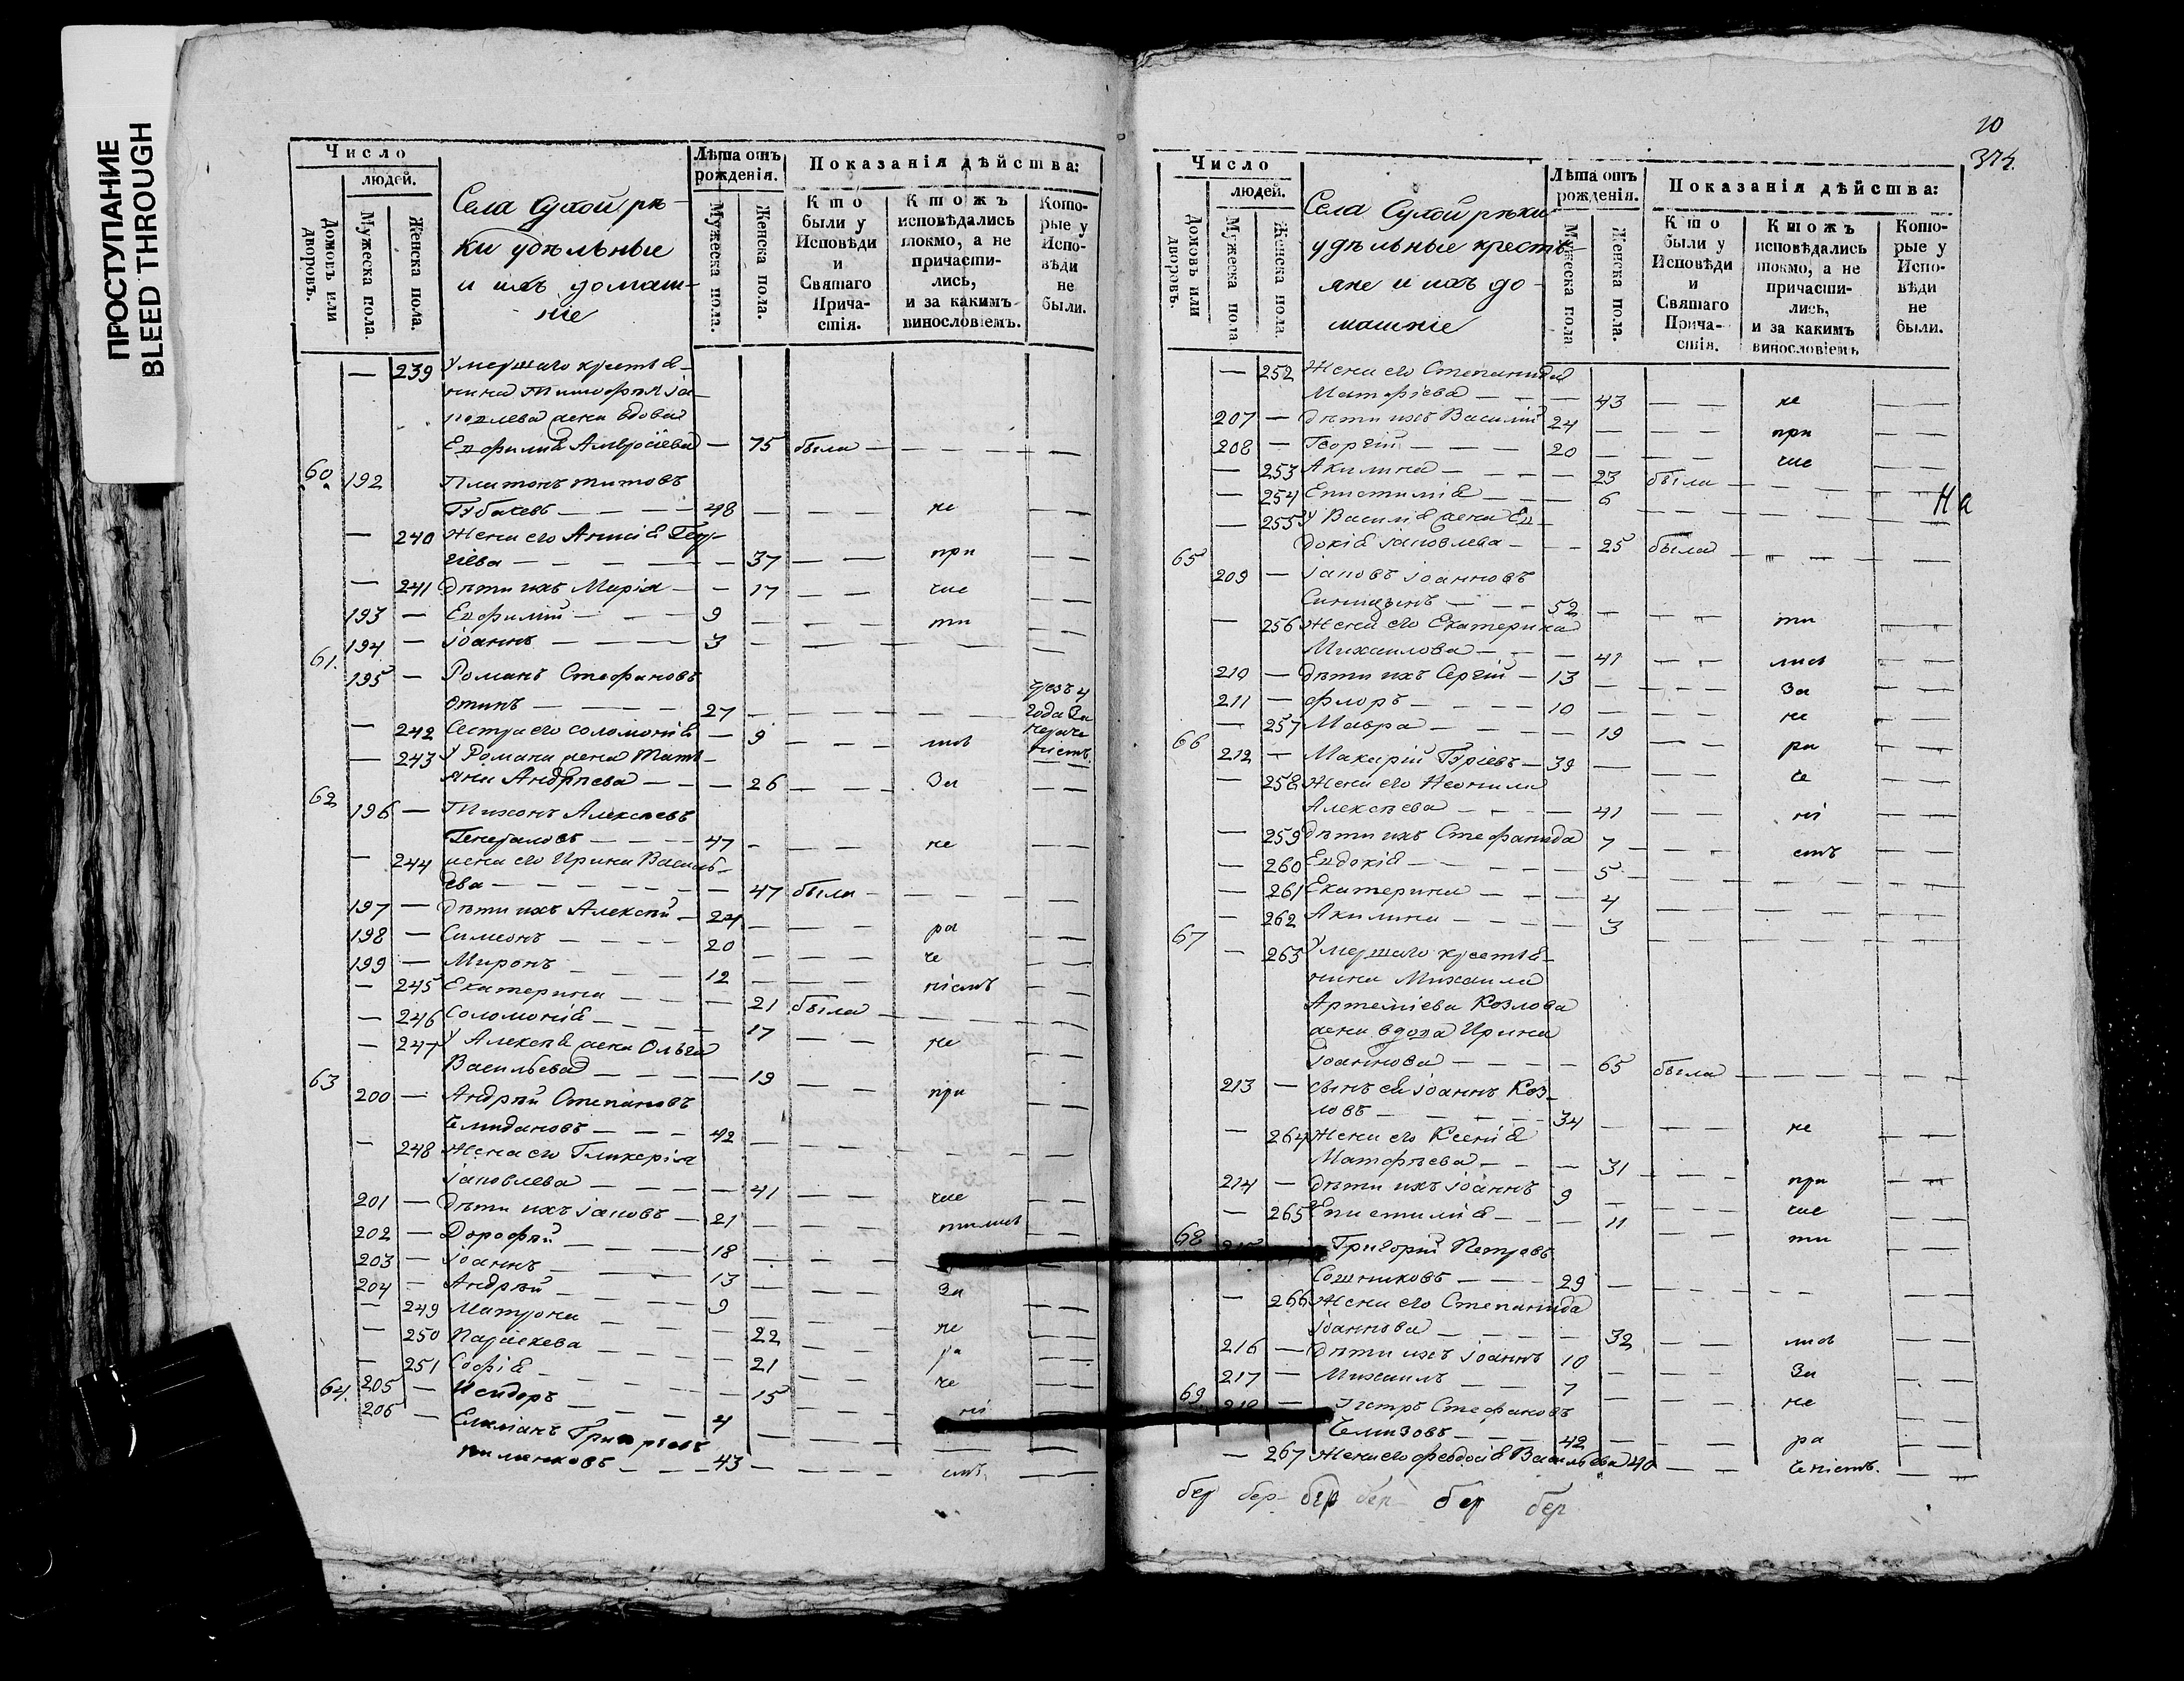 ПРОСТУПАНИЕ
BLEED THROUGH
Число
людей.
Домовъ или дворовъ.
Мужеска пола
Женска пола.
Села Сухой рѣ-
ки удѣльные
и ихъ домаш-
ніе
Лѣта отъ рожденія.
Мужеска пола.
Женска пола.
Показанія дѣйства:
Кто были у Исповѣди и Святаго Прича-стія.
Ктожъ исповѣдались токмо, а не причасти-лись, и за какимъ винословіемъ.
Кото-рые у Испо-вѣди не были.
— 239 Умершаго крестья-
нина Тимофея Іа-
ковлева жена вдова
Евфимія Амвросіева — 75 была — — — — — —
60. 192 Платонъ Титовъ
48 — — — не — —
— 240 Жена его Анисія Геор-
гіева — — — — — 37 — — при — —
— 241 Дѣти ихъ Марія — — 17 — — час — —
193 — Евфимій — — 9 — — — ти — —
194 — Іоаннъ — — — 3 — — — — — —
61. 195 — Романъ Стефановъ
27 — — — — — чрезъ 4 года за нераченіемъ
— 242 Сестра его Соломонія — 9 — — — лись
— 243 У Романа жена Татья-
на Андреева — — — 26 — — — За — —
62 196 — Тихонъ Алексѣевъ
Генераловъ — — — 47 — — — не — —
— 244 жена его Ирина Василь-
ева — — — — — — 47 была — — — — —
197 — Дѣти ихъ Алексѣй — 24 — — — ра — —
198 — Симеонъ — — — — 20 — — — че — —
199 — Миронъ — — — 12 — — — ніемъ — —
— 245 Екатерина — — — — 21 была — — — — —
— 246 Соломонія — — — — 17 — — не — —
— 247 У Алексѣя жена Ольга
Васильева — — — — 19 — — при — —
63 200 — Андрей Степановъ
42 — — — — — — — —
— 248 Жена его Гликерія
Іаковлева — — — — 41 — — час — —
201 — Дѣти ихъ Іаковъ — 21 — — — тились — —
202 — Дорофей — — — 18 — — — — —
203 — Іоаннъ — — — — 13 — — — За — —
204 — Андрей — — — — 9 — — — — —
— 249 Матрона — — — — 22 — — не — —
— 250 Параскева — — — — 21 — — ра — —
— 251 Софія — — — — 15 — — че — —
205 — Исидоръ — — — 4 — — — ні — —
64. 206 — Григорьевъ
43 — — — — емъ. — —
10
374.
Число
людей.
Домовъ или дворовъ.
Мужеска пола
Женска пола.
Села Сухой рѣки
удѣльные кресть-
яне и ихъ до-
машніе
Лѣта отъ рожденія.
Мужеска пола
Женска пола.
Показанія дѣйства:
Кто были у Исповѣди и Святаго Прича-стія.
Ктожъ исповѣдались токмо, а не причасти-лись, и за какимъ винословіемъ
Кото-рые у Испо-вѣди не были.
— 252 Жена его Степанида
— — — 43 — — не — —
207 — Дѣти ихъ Василій 24 — — — при — —
208 — Георгій — — — 20 — — — час — —
— 253 Акилина — — — — 23 была — — — — —
— 254 Епистимія — — — 6 — — — — — — На
— 255 У Василія жена Ев-
докія Іаковлева — — — 25 была — — — — —
65 209 — Іаковъ Іоанновъ
52 — — — ти — —
— 256 Жена его Екатерина
Михаилова — — — 41 — — лись — —
210 — Дѣти ихъ Сергій — 13 — — — За — —
211 — Флоръ — — — — 10 — — — не — —
— 257 Мавра — — — — — 19 — — ра — —
66 212 — Макарій Гурiевъ — 39 — — — че — —
— 258 Жена его Неонила
Алексѣева — — — — 41 — — ні — —
— 259 Дѣти ихъ Стефанида 7 — — — емъ — —
— 260 Евдокія — — — — 5 — — — — — —
— 261 Екатерина — — — 4 — — — — — —
— 262 Акилина — — — — 3 — — — — — —
67 — 263 Умершаго крестья-
нина Михаила
Артеміева Козлова
жена вдова Ирина
Іоаннова — — — — 65 была — — — — —
213 — Сынъ ея Іоаннъ Коз-
ловъ — — — — — 34 — — — не — —
— 264 Жена его Ксенія
Матфѣева — — — 31 — — — при — —
214 — Дѣти ихъ Іоаннъ 9 — — — час — —
— 265 Епистимія — — — 11 — — ти — —
68 215 Григорій Петровъ
Сошниковъ — — — 29 — — — — —
— 266 Жена его Степанида
Іоаннова — — — — 32 — — лись — —
216 — Дѣти ихъ Іоаннъ 10 — — — За — —
217 — Михаилъ — — 7 — — — не — —
69 218 — Петръ Стефановъ
42 — — — ра — —
— 267 Жена его Феодосія Васильева 40 — — ченіемъ. — —
бер бер бер бер бер бер